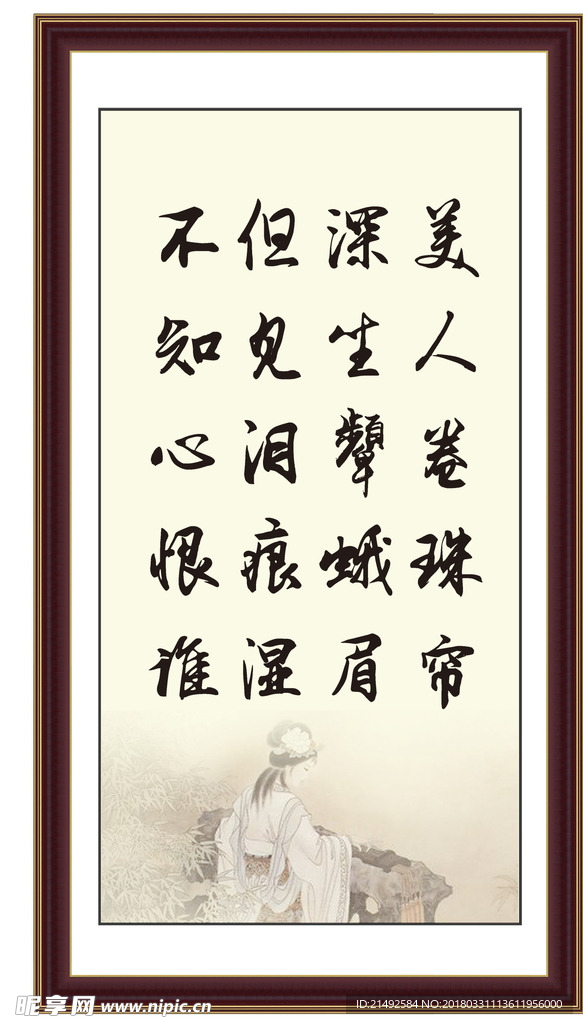 美人卷珠帘
深坐颦蛾眉
但见泪痕湿
不知心恨谁
昵享网 www.nipic.cn
ID:21492584 NO:20180331113611956000